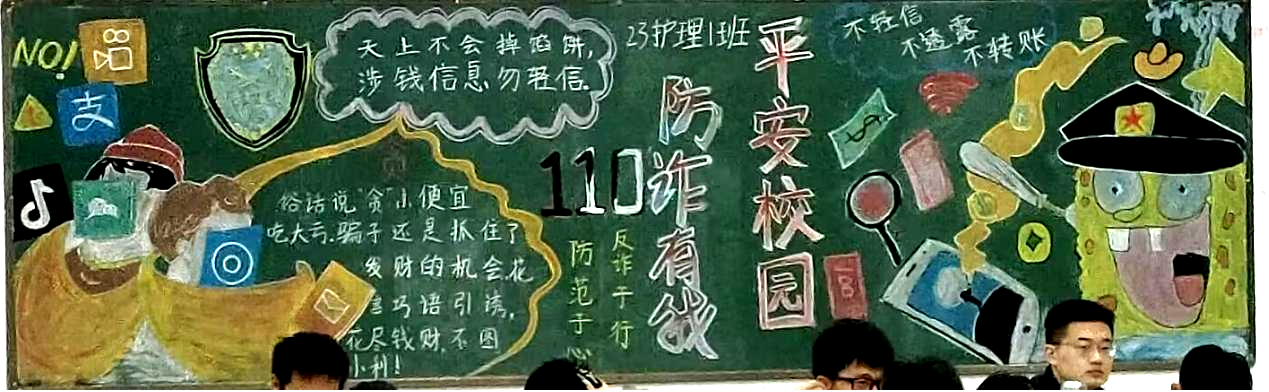 NO!
支
天上不会掉馅饼,
涉钱信息勿轻信.
贪
俗话说"贪"小便宜
吃大亏.骗子还是抓住了
发财的机会花
言巧语引诱,
花尽钱财.不图
小利!
110
防范于心
反诈于行
23护理1班
防诈有我
平安校园
不轻信
不透露
不转账